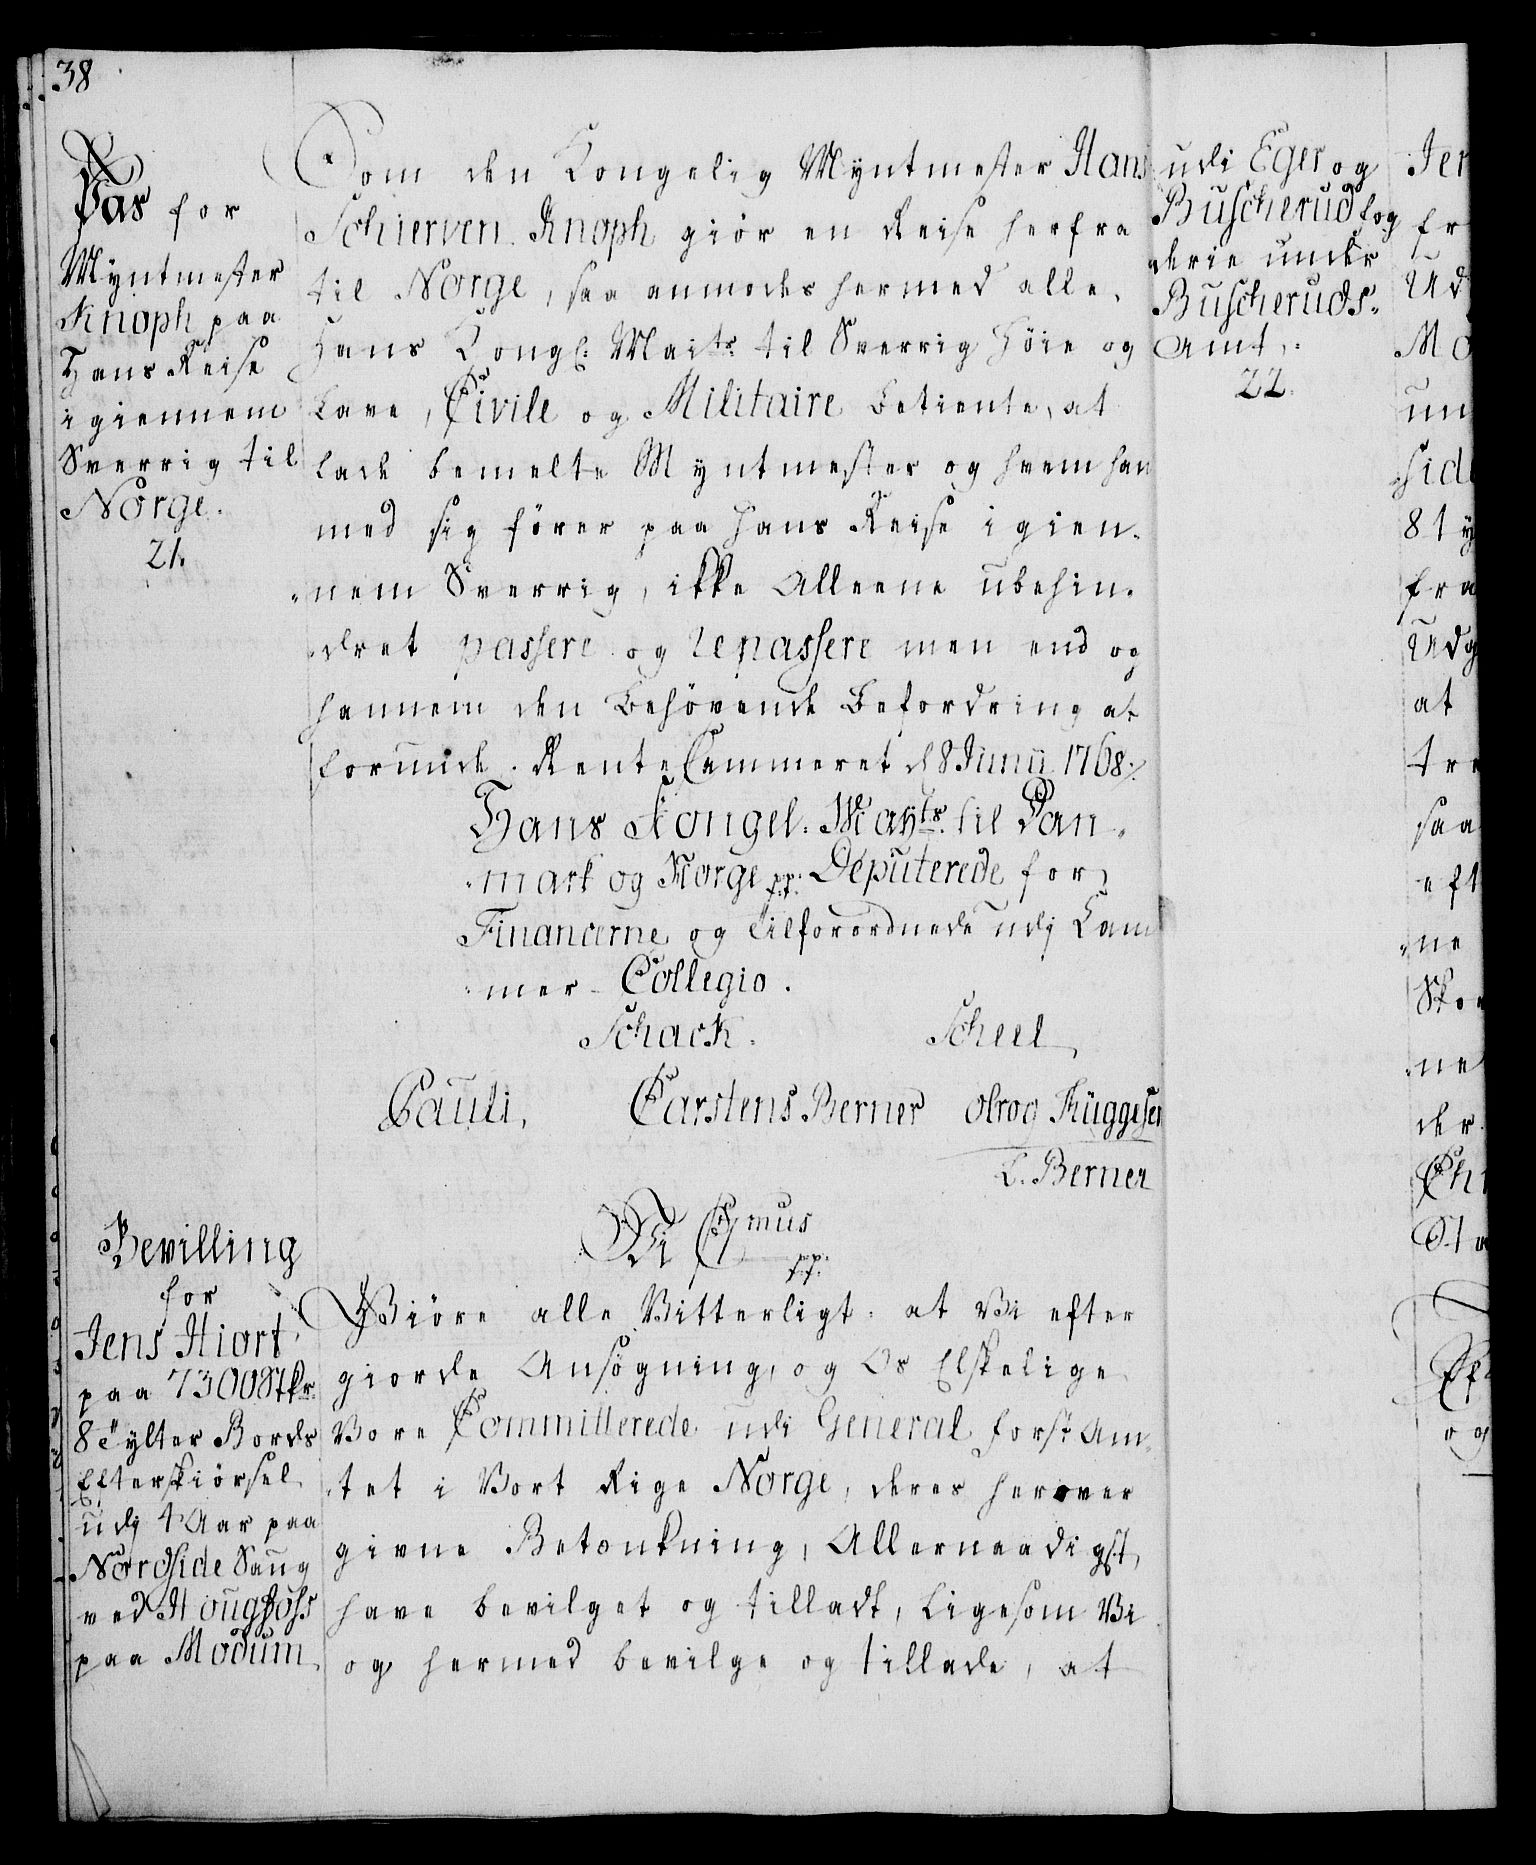 38
Pas for
Myntmester
Knoph paa
Hans Reise
igiennem
Sverrig til
Norge.
21.
Som den Kongelig Myntmester Hans
Schierven Knoph giör en Reise herfra
til Norge, saa anmodes hermed alle
Hans Kongl: Maits. til Sverrig Höie og
Lave, Civile og Militaire betiente, at
lade bemelte Myntmester og hvem han
med sig förer paa Hans Reise igien-
nem Sverrig, ikke Alleene ubehin-
dret passere og repassere men end og
hannem den behövende befordring at
forunde. RenteCammeret d 8 Junii 1768.
Hans Kongel. Mayts. til Dan-
mark og Norge pp. Deputerede for
Financerne og Tilforordnede udj Cam
mer-Collegio.
Schack. Scheel
Pauli, Carstens Berner Olrog Thüggesen
C. Berner
Bevilling
for
Jens Hiort
paa 7300 Stkr.
8 Tylter Bords
Efterskiörsel
udj 4 Aar paa
Nordside Saug
ved Hougfoss
paa Modum
Vi C7mus
pp.
Giöre alle Vitterligt: at Vi efter
giorde Ansögning, og Os Elskelige
Vore Committerede udi General forst Am-
tet i Vort Rige Norge, deres herover
givne Betænkning, Allernaadigst
have bevilget og tilladt, Ligesom Vi
og hermed bevilge og tillade, at
udi Eger og
Buscherud fog
derie under
Buscheruds-
Amt.
22.
Jen
fr
Ud
Mo
un
side
8 ty
fra
Udg
at
tre
saa
eft
ne
Skov
ne
der
Chr
Sta
og